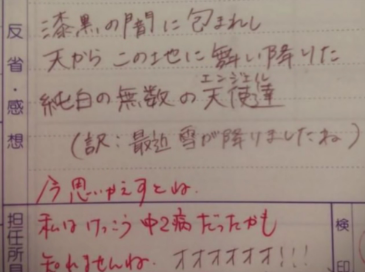 反省・感想
漆黒の闇に包まれし
天からこの地に舞い降りた
エンジェル
純白の無数の天使達
(訳:最近雪が降りましたね)
今思いかえすとね、
私はけっこう中2病だったかも
知れませんね。オオオオオオ!!!
担任所見
検印